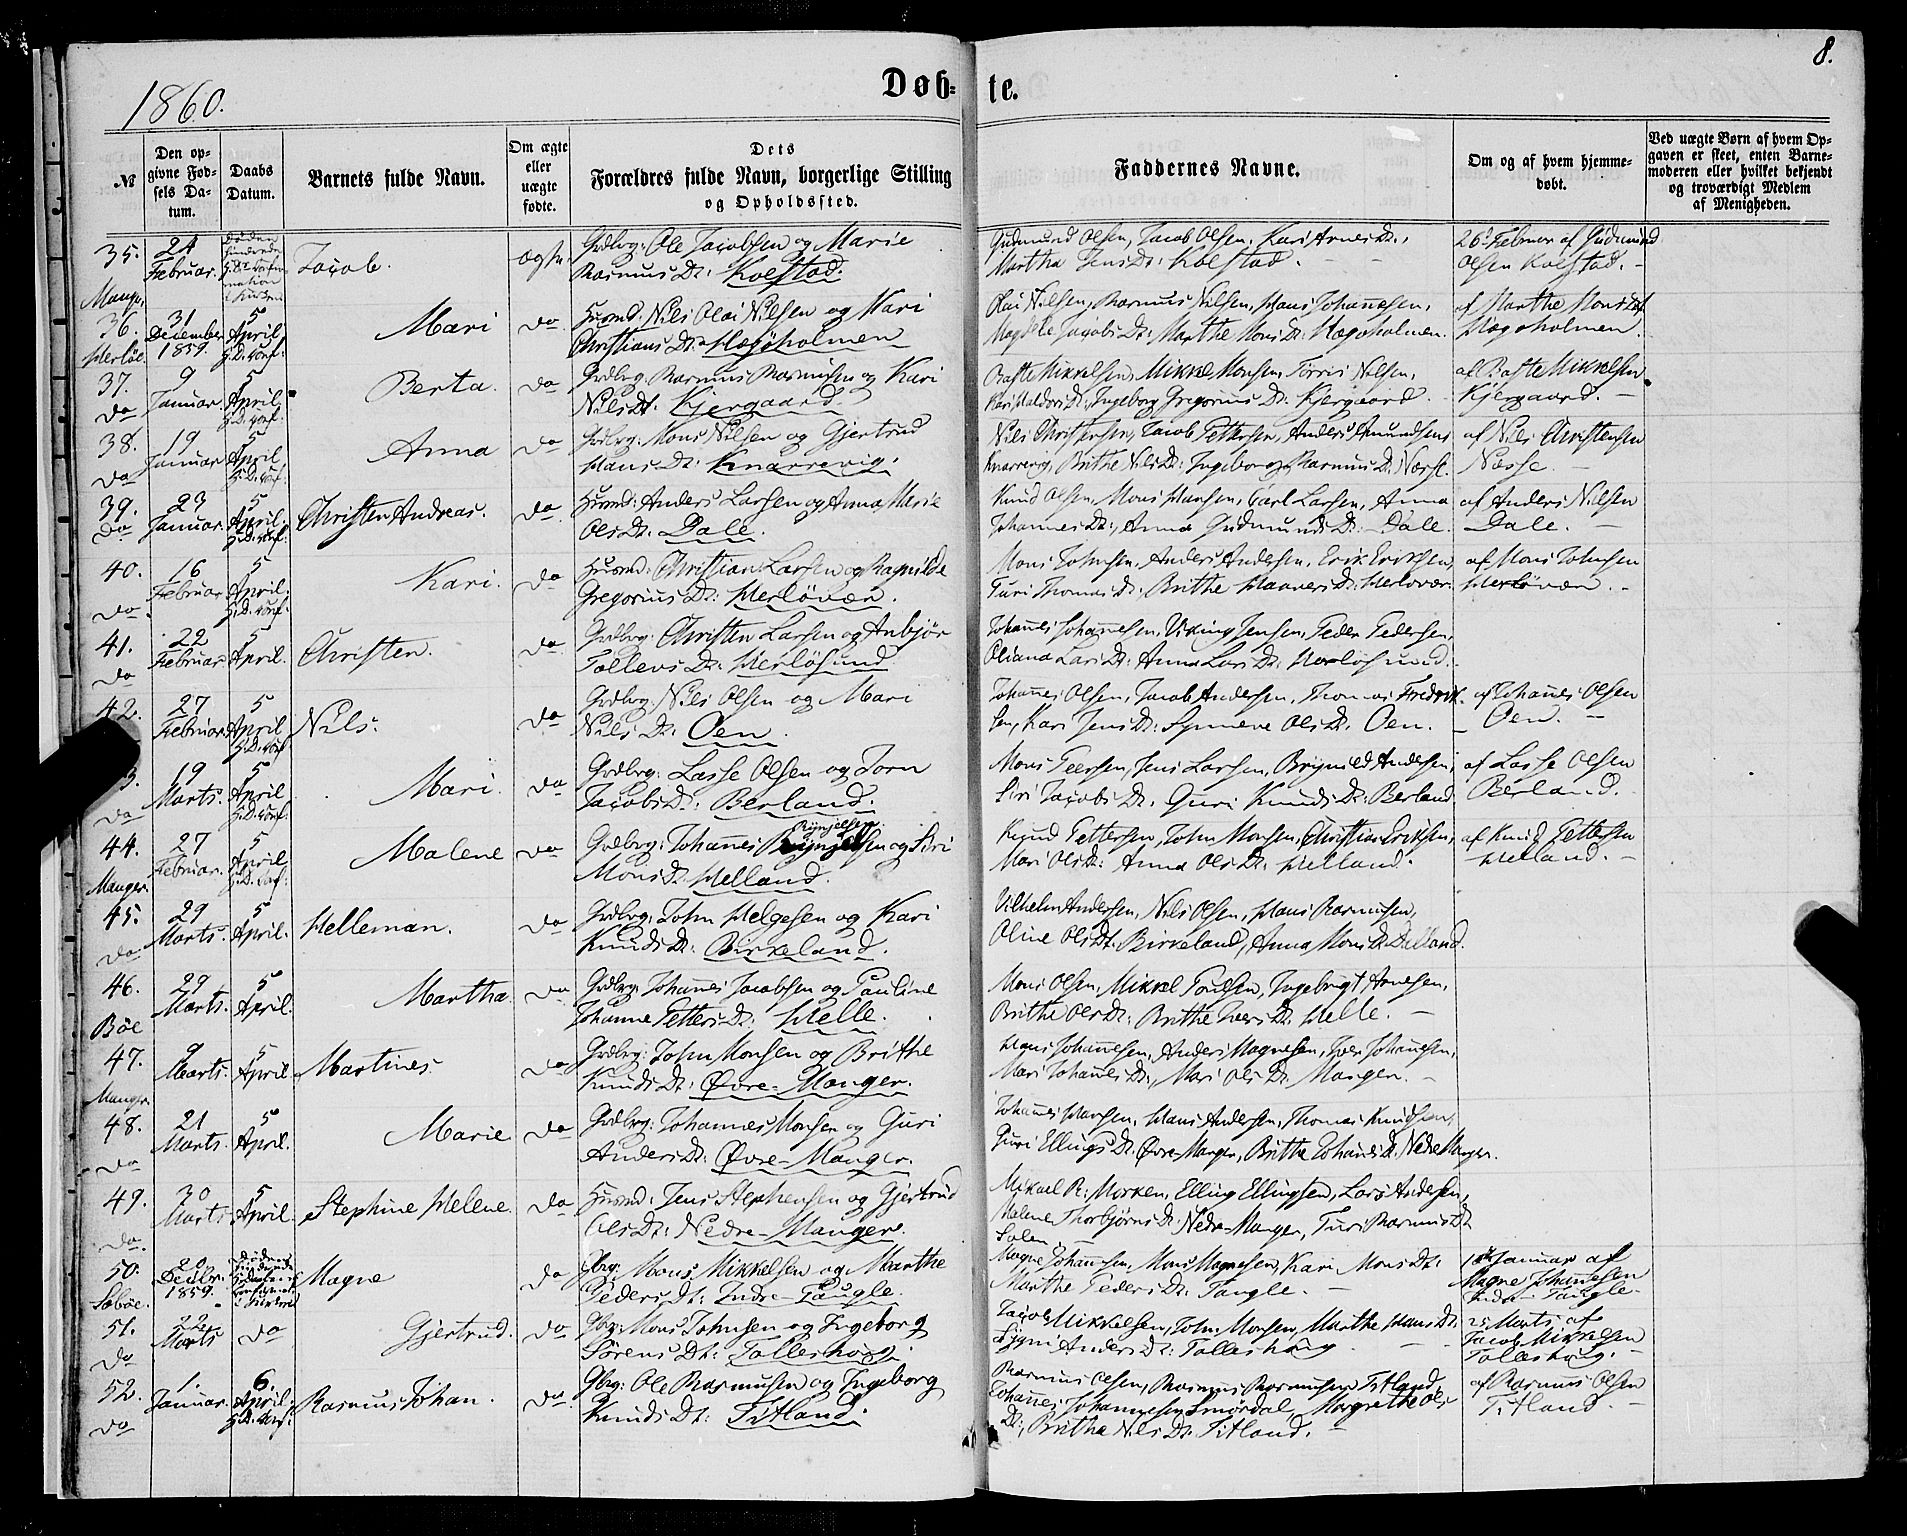 8.
1860.
Døb-te.
№
Den opgivne Fødsels Datum.
Daabs Datum.
Barnets fulde Navn.
Om ægte eller uægte fødte.
Dets Forældres fulde Navn, borgerlige Stilling og Opholdssted.
Faddernes Navne.
Om og af hvem hjemmedøbt.
Ved uægte Børn af hvem Opgaven er skeet, enten Barnemoderen eller hvilket bekjendt og troværdigt Medlem af Menigheden.
35. Manger
24 Februar
Jacob.
ægte
Grdbrg: Ole Jacobsen og Marie
Rasmus Dt: Kolstad.
Gudmund Olsen, Jacob Olsen, Kari Arnes Dt:,
Martha Jens Dt: Kolstad.
26' Februar af Gudmund
Olsen Kolstad.
36. Herløe
31 December 1859.
5 April H.D. Conf:
Mari
do
Husmd: Nils Olai Nilsen og Kari
Christians Dt: Hægøholmen
Olai Nilsen, Rasmus Nilsen, Hans Johannesen,
Magdele Jacobs Dt: Marthe Mons Dt: Hægøholmen.
af Marthe Mons Dt.
Hægøholmen.
37. do
9 Januar
5 April. H.D. Conf:
Berta.
do
Grdbrg: Rasmus Rasmusen og Kari
Nils Dt: Kjergaard
Baste Mikkelsen, Mikkel Monsen, Torris Nilsen,
Kari Haldors Dt: Ingeborg Gregorius Dt: Kjergaard.
af Baste Mikkelsen
Kjergaard.
38. do
19 Januar
5 April H.D. Conf:
Anna
do
Grdbrg: Mons Nilsen og Gjertrud
Hans Dt: Knarrevig.
Nils Christensen, Jacob Pettersen, Anders Amundsens
Knarrevig, Brithe Nils Dt: Ingeborg Rasmus Dt: Næsse.
af Nils Christensen
Næsse.
39. do
23 Januar
5 April. H.D. Conf:
Christen Andreas.
do
Husmd: Anders Larsen og Anna Marie
Ols Dt: Dale.
Knud Olsen, Mons Hansen, Carl Larsen, Anna
Johannes Dt:, Anna Gudmunds Dt: Dale.
af Anders Nilsen
Dale.
40. do
16 Februar
5 April. H.D. Conf:
Kari.
do
Husmd: Christian Larsen og Ragnilde
Gregorius Dt: Herløvær.
Mons Johnsen, Anders Andersen, Erik Eriksen,
Turi Thomas Dt: Brithe Haavers Dt: Herløvær.
af Mons Johnsen
Herløvær.
41. do
22 Februar
5 April.
Christen.
do
Grdbrg: Christen Larsen og Anbjør
Tollevs Dt: Herløsund
Johannes Johannesen, Viking Jensen, Peder Pedersen,
Oliana Lars Dt: Anna Lars Dt: Herløsund.
42.
27 Februar
5 April H.D. Conf:
Nils.
do
Grdbrg: Nils Olsen og Mari
Nils Dt: Oen.
Johannes Olsen, Jacob Andersen, Thomas Fredrik-
sen, Kari Jens Dt: Synneve Ols Dt: Oen.
af Johannes Olsen
Oen.
do
19 Marts.
5 April H.D. Conf:
Mari.
do
Grdbrg: Lasse Olsen og Jorn
Jacobs Dt: Berland.
Mons Peersen, Jens Larsen, Brynild Andersen,
Siri Jacobs Dt: Guri Knuds Dt: Berland
af Lasse Olsen
Berland.
44. Manger.
27 Februar.
5 April H.D. Conf:
Malene
do
Grdbrg: Johannes Rynjelsen og Siri
Mons Dt: Helland
Knud Pettersen, John Monsen, Christian Eriksen,
Mari Ols Dt: Anna Ols Dt: Helland.
af Knud Pettersen
Helland.
45. do
29 Marts.
5 April.
Helleman.
do
Grdbrg: John Helgesen og Kari
Knuds Dt: Birkeland.
Vilhelm Andersen, Nils Olsen, Hans Rasmusen,
Oline Ols Dt: Birkeland, Anna Mons Dt: Helland.
46. Bøe
29 Marts.
5 April.
Martha.
do
Grdbrg: Johannes Jacobsen og Pauline
Johanne Petters Dt: Helle.
Mons Olsen, Mikkel Poulsen, Ingebrigt Arnesen,
Brithe Ols Dt: Brithe Ivers Dt: Helle.
47. Manger.
9 Marts.
5 April
Martines
do
Grdbrg: John Monsen og Brithe
Knuds Dt: Øvre-Manger.
Hans Johannesen, Anders Magnesen, Iver Johannesen,
Mari Johannes Dt:, Mari Ols Dt: Manger.
48. do
21 Marts.
5 April.
Marie
do
Grdbrg: Johannes Monsen og Guri
Anders Dt: Øvre-Manger.
Johannes Hansen, Hans Andersen, Thomas Knudsen,
Guri Ellings Dt: Øvre-Manger, Brithe Johannes Dt: Nedre Manger.
49. do.
30 Marts
5 April
Stephine Helene.
do
Husmd: Jens Stephensen og Gjertrud
Ols Dt: Nedre-Manger.
Mikael R: Morken, Elling Ellingsen, Lars Andersen,
Malene Thorbjørns Dt: Nedre-Manger, Turi Rasmus Dt
Solen
50. Sæbøe.
Decbr. 1859.
Magne
do
Gbrg: Mons Mikkelsen og Marthe
Peders Dt: Indre-Taugle.
Magne Johannesen, Mons Magnesen, Kari Mons Dt:
Marthe Peders Dt: Taugle.
Januar af
Magne Johannesen
Indre-Taugle.
51. do
22 Marts
do
Gjertrud.
do
Gbrg: Mons Johnsen og Ingeborg
Sørens Dt: Tolleshoug.
Jacob Mikkelsen, John Monsen, Marthe Hans Dt:
Signi Anders Dt: Tolleshoug.
25 Marts af
Jacob Mikkelsen
Tolleshoug.
52. do
1. Januar
6. April. H.D. Conf:
Rasmus Johan.
do
Gbrg: Ole Rasmusen og Ingeborg
Knuds Dt: Titland.
Rasmus Olsen, Rasmus Rasmusen Titland,
Johannes Johannesen Smørdal, Margrethe Ols
Dt:, Brithe Nils Dt: Titland.
af Rasmus Olsen
Titland.